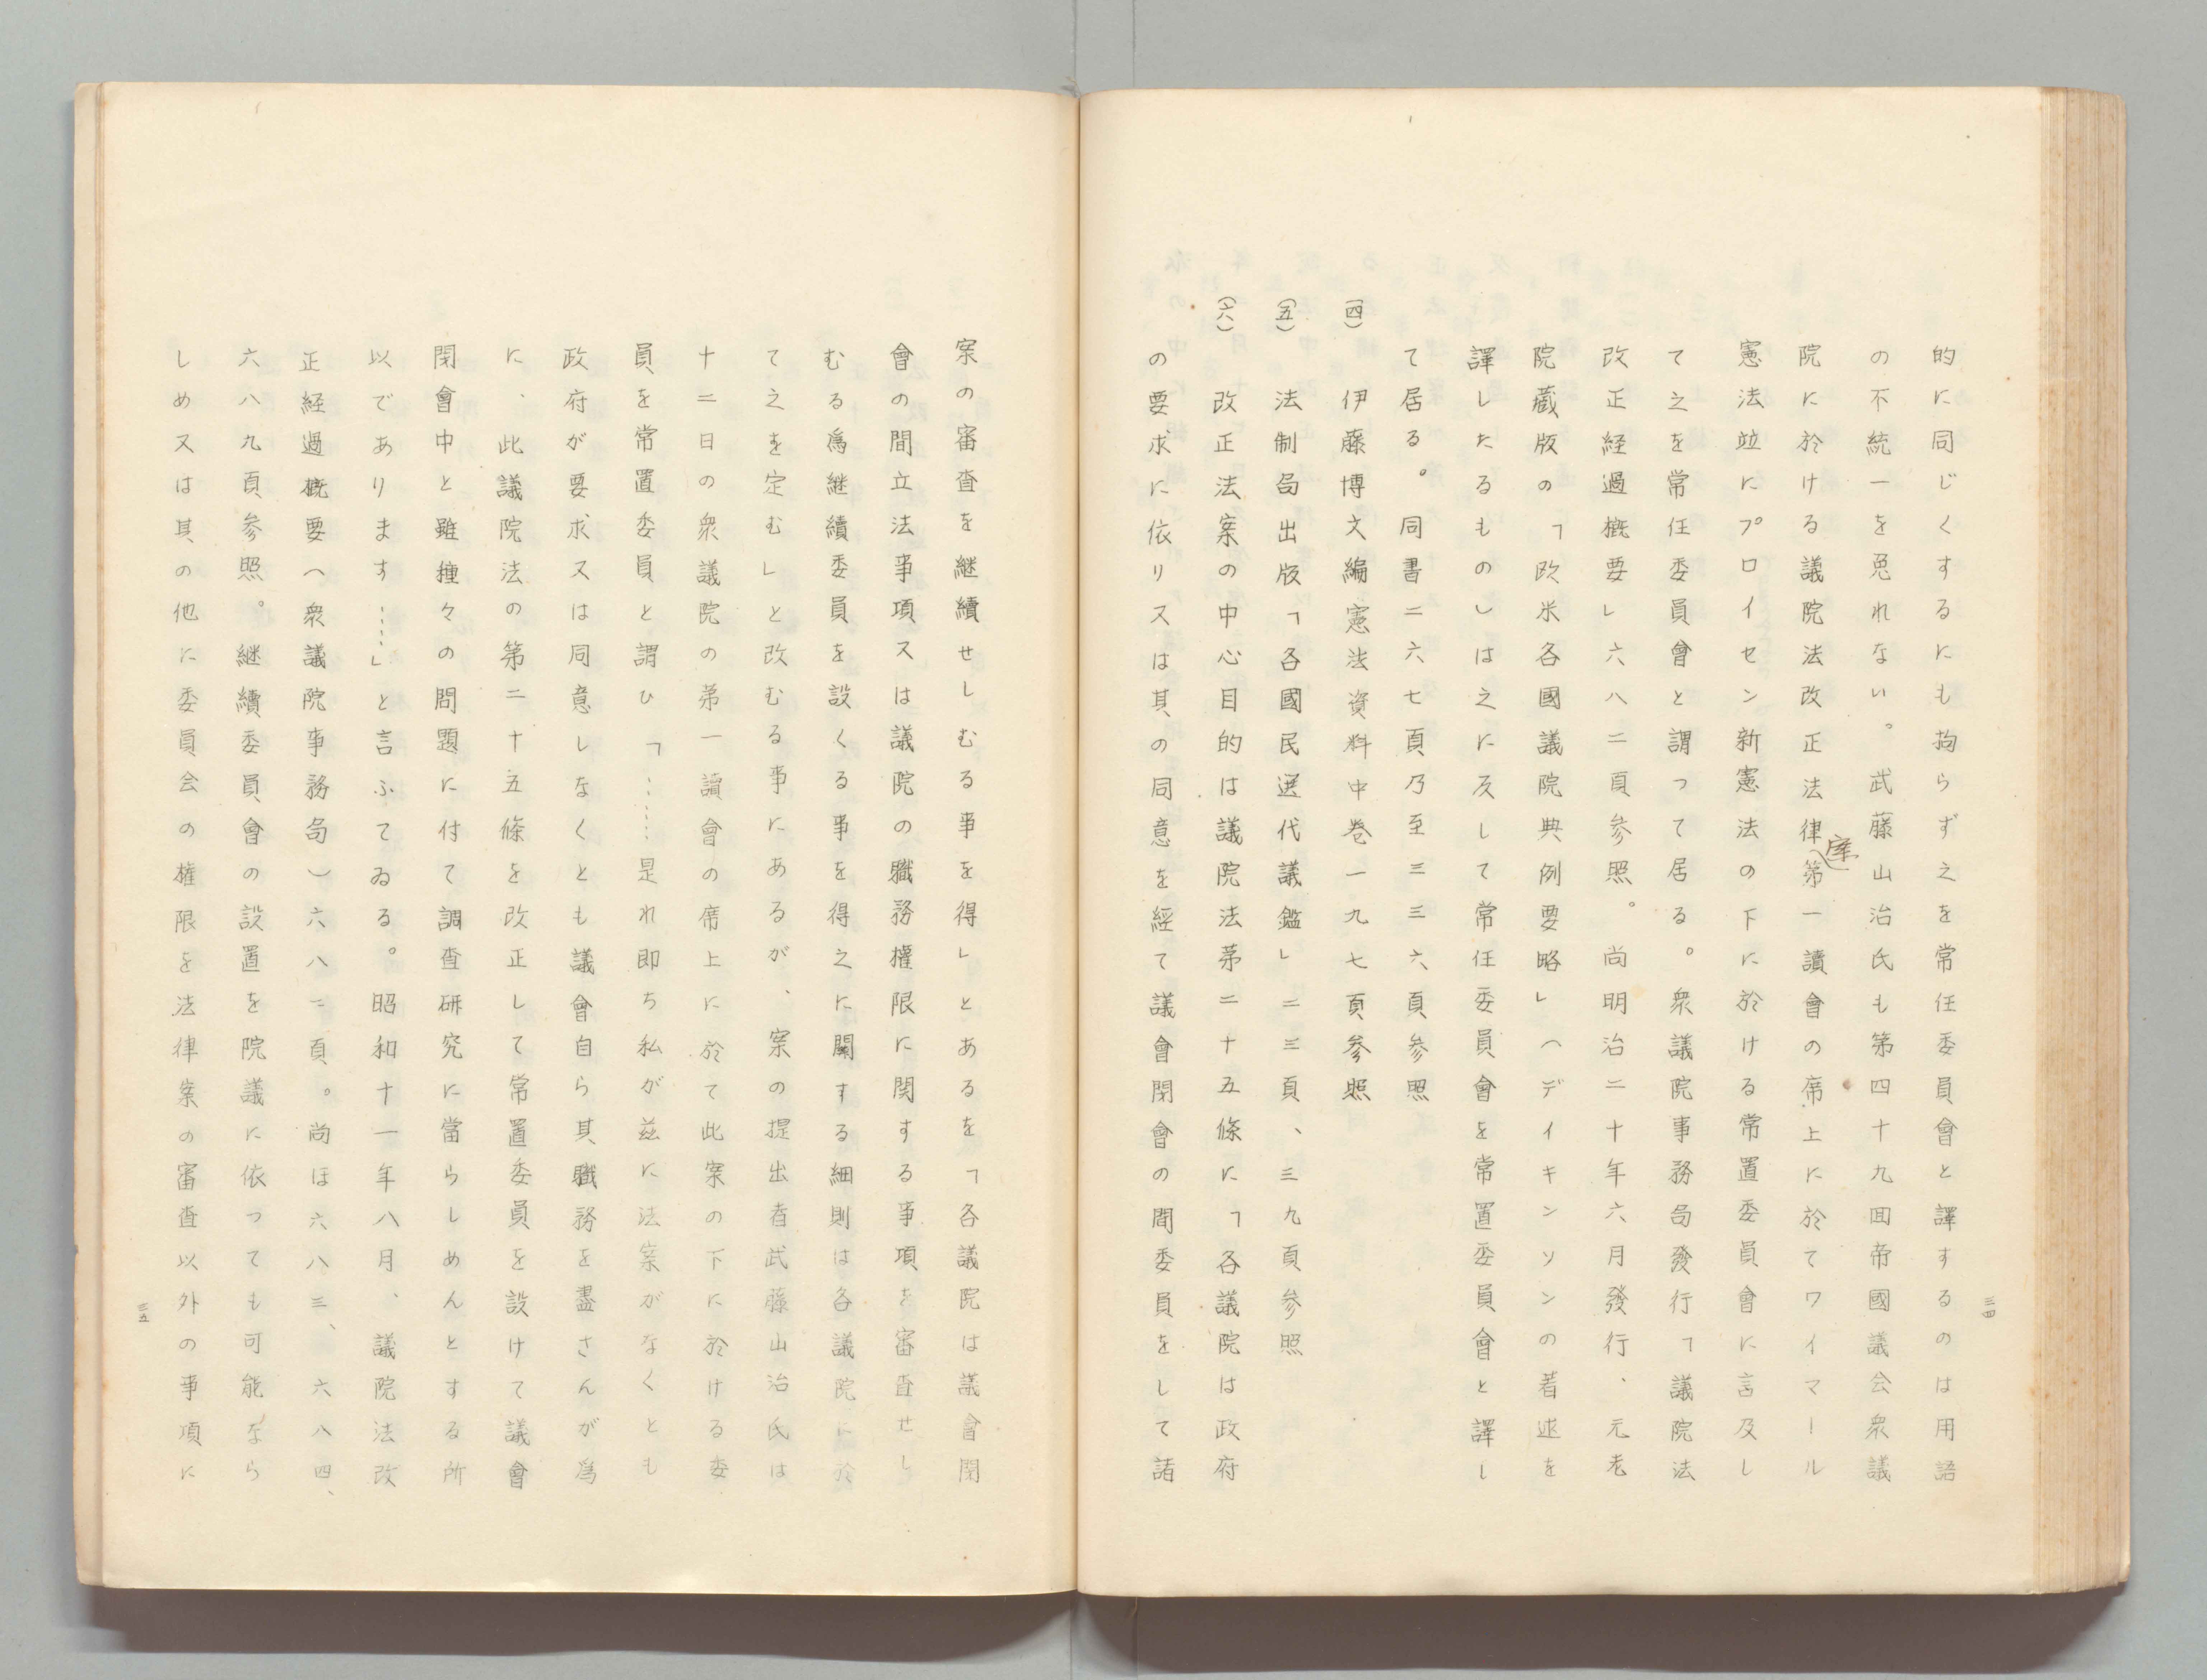 三四
的に同じくするにも拘らず之を常任委員會と譯するのは用語
の不統一を免れない。武藤山治氏も第四十九囬帝國議会衆議
院に於ける議院法改正法律案第一讀會の席上に於てワイマール
憲法竝にプロイセン新憲法の下に於ける常置委員會に言及し
て之を常任委員會と謂つて居る。衆議院事務局發行「議院法
改正経過概要」六八二頁参照。尚明治二十年六月發行、元老
院藏版の「欧米各國議院典例要略」(デイキンソンの著述を
譯したるもの)は之に反して常任委員會を常置委員會と譯し
て居る。同書二六七頁乃至三三六頁参照
(四) 伊藤博文編憲法資料中巻一九七頁参照
(五) 法制局出版「各國民選代議鑑」二三頁、三九頁参照
(六) 改正法案の中心目的は議院法第二十五條に「各議院は政府
の要求に依り又は其の同意を経て議會閉會の間委員をして諸
案の審査を継續せしむる事を得」とあるを「各議院は議會閉
會の間立法事項又は議院の職務權限に関する事項を審査せし
むる爲継續委員を設くる事を得之に關する細則は各議院に於
て之を定む」と改むる事にあるが、案の提出者武藤山治氏は
十二日の衆議院の第一讀會の席上に於て此案の下に於ける委
員を常置委員と謂ひ「……是れ即ち私が茲に法案がなくとも
政府が要求又は同意しなくとも議會自ら其職務を盡さんが爲
に、此議院法の第二十五條を改正して常置委員を設けて議會
閉會中と雖種々の問題に付て調査研究に當らしめんとする所
以であります……」と言ふてゐる。昭和十一年八月、議院法改
正経過概要(衆議院事務局)六八二頁。尚ほ六八三、六八四、
六八九頁参照。継續委員會の設置を院議に依つても可能なら
しめ又は其の他に委員会の權限を法律案の審査以外の事項に
三五